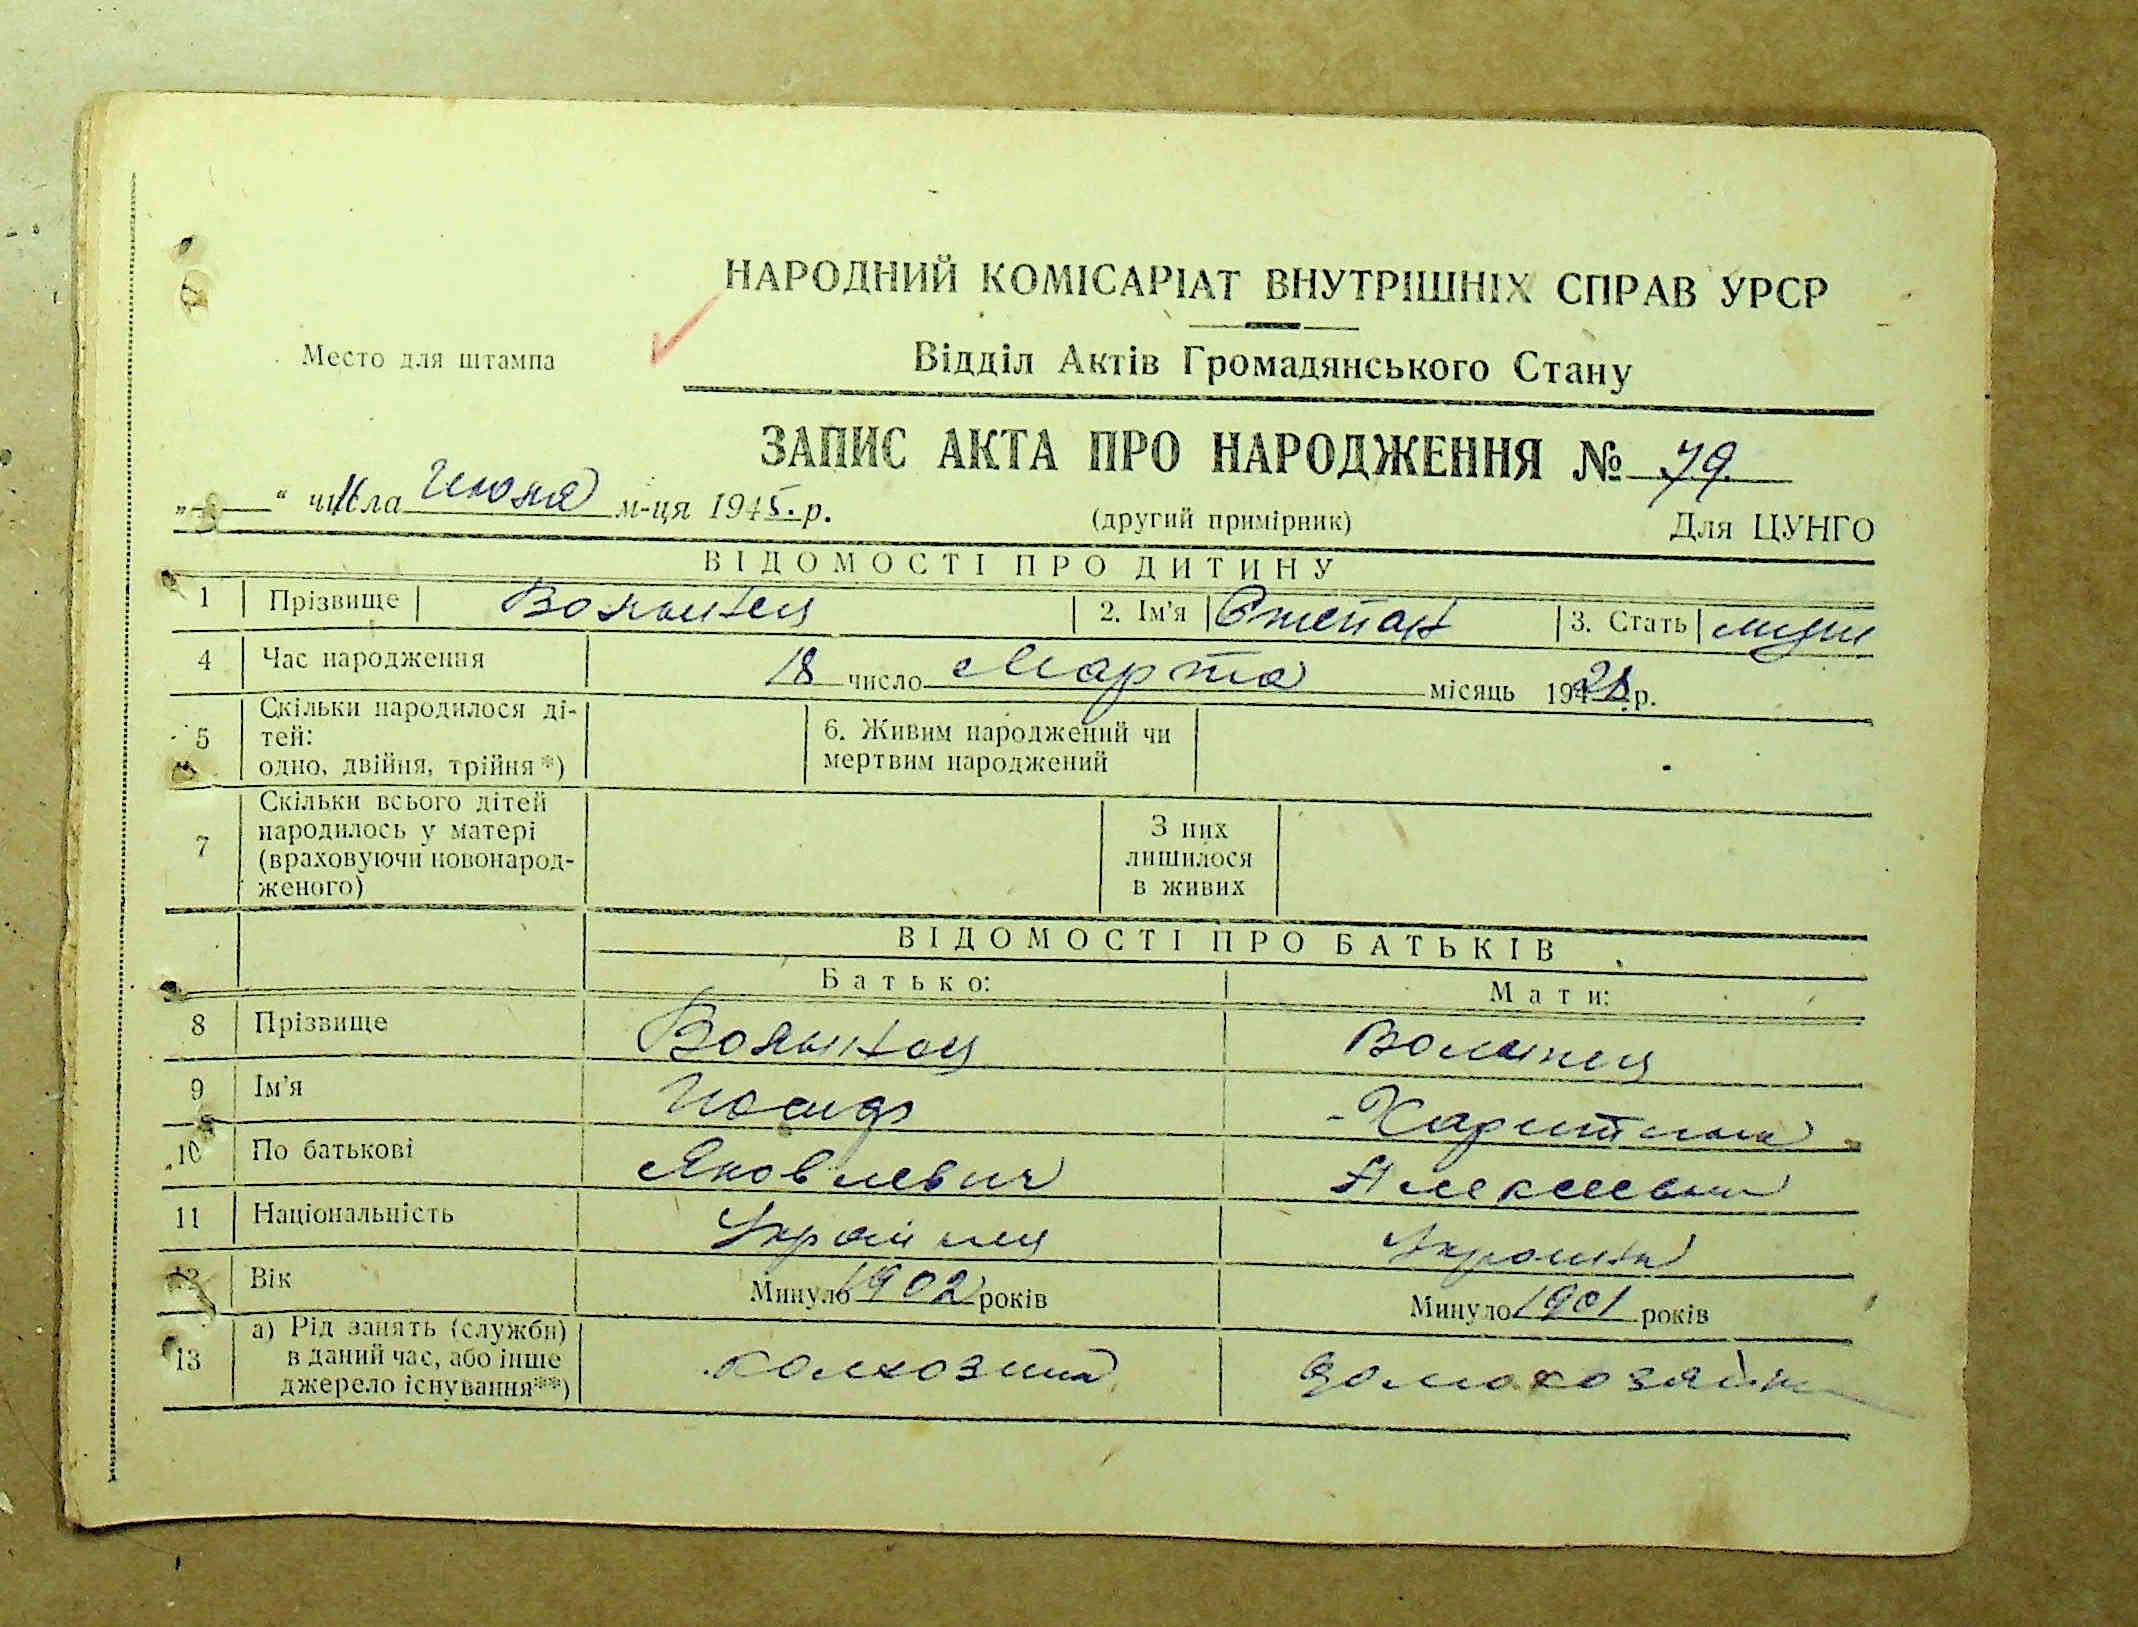 НАРОДНИЙ КОМІСАРІАТ ВНУТРІШНІХ СПРАВ УРСР
Место для штампа
Відділ Актів Громадянського Стану
ЗАПИС АКТА ПРО НАРОДЖЕННЯ № 79
„ “ числа Июня м-ця 1945. р.
(другий примірник) Для ЦУНГО
ВІДОМОСТІ ПРО ДИТИНУ
1 Прізвище Волынец 2. Ім'я Степан 3. Стать муж
4 Час народження 18 число Марта місяць 1928 р.
5 Скільки народилося ді-
тей:
одно, двійня, трійня*)
6. Живим народжений чи
мертвим народжений
7 Скільки всього дітей
народилось у матері
(враховуючи новонарод-
женого)
З них
лишилося
в живих
ВІДОМОСТІ ПРО БАТЬКІВ
Батько: Мати:
8 Прізвище Волынец Волынец
9 Ім'я Иосиф Харитина
10 По батькові Яковлевич Алексеевна
11 Національність Украінец
12 Вік Минуло 1902 років Минуло 1901 років
13 а) Рід занять (служби)
в даний час, або інше
джерело існування**)
колхозник домохозяйка